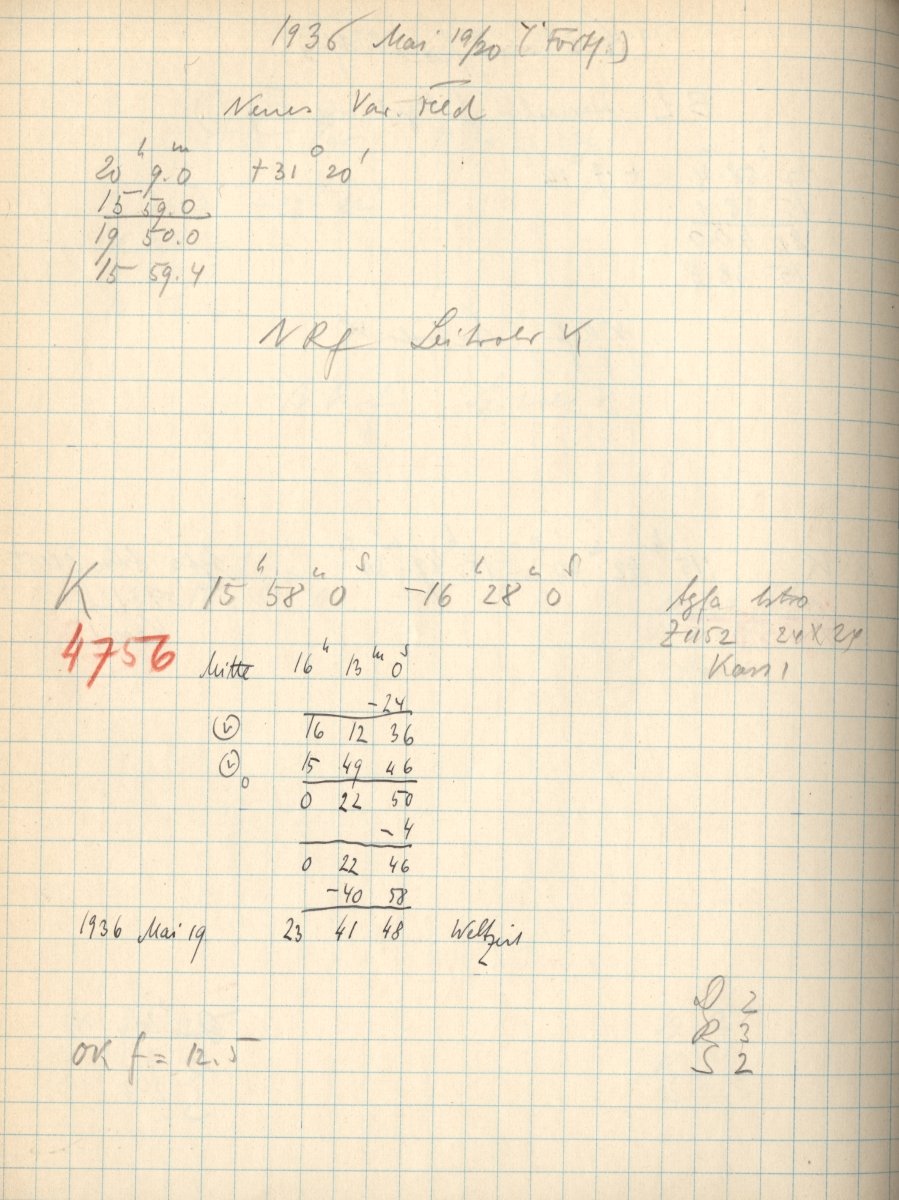 1936 Mai 19/20 (Forts.)
Neues Var. Feld
20ʰ 9ᵐ.0 +31° 20'
15 59.0
19 50.0
15 59.4
NRf Leitrohr K
K 15ʰ 58ᵐ 0ˢ -16ʰ 28ᵐ 0ˢ Agfa Astro
4756 Z1152 24X24
Kass 1
Mitte 16ʰ 13ᵐ 0ˢ
-24
16 12 36
15 49 46
0
0 22 50
-4
0 22 46
-40 58
1936 Mai 19 23 41 48 Weltzeit
D 2
R 3
OK f = 12.5 S 2